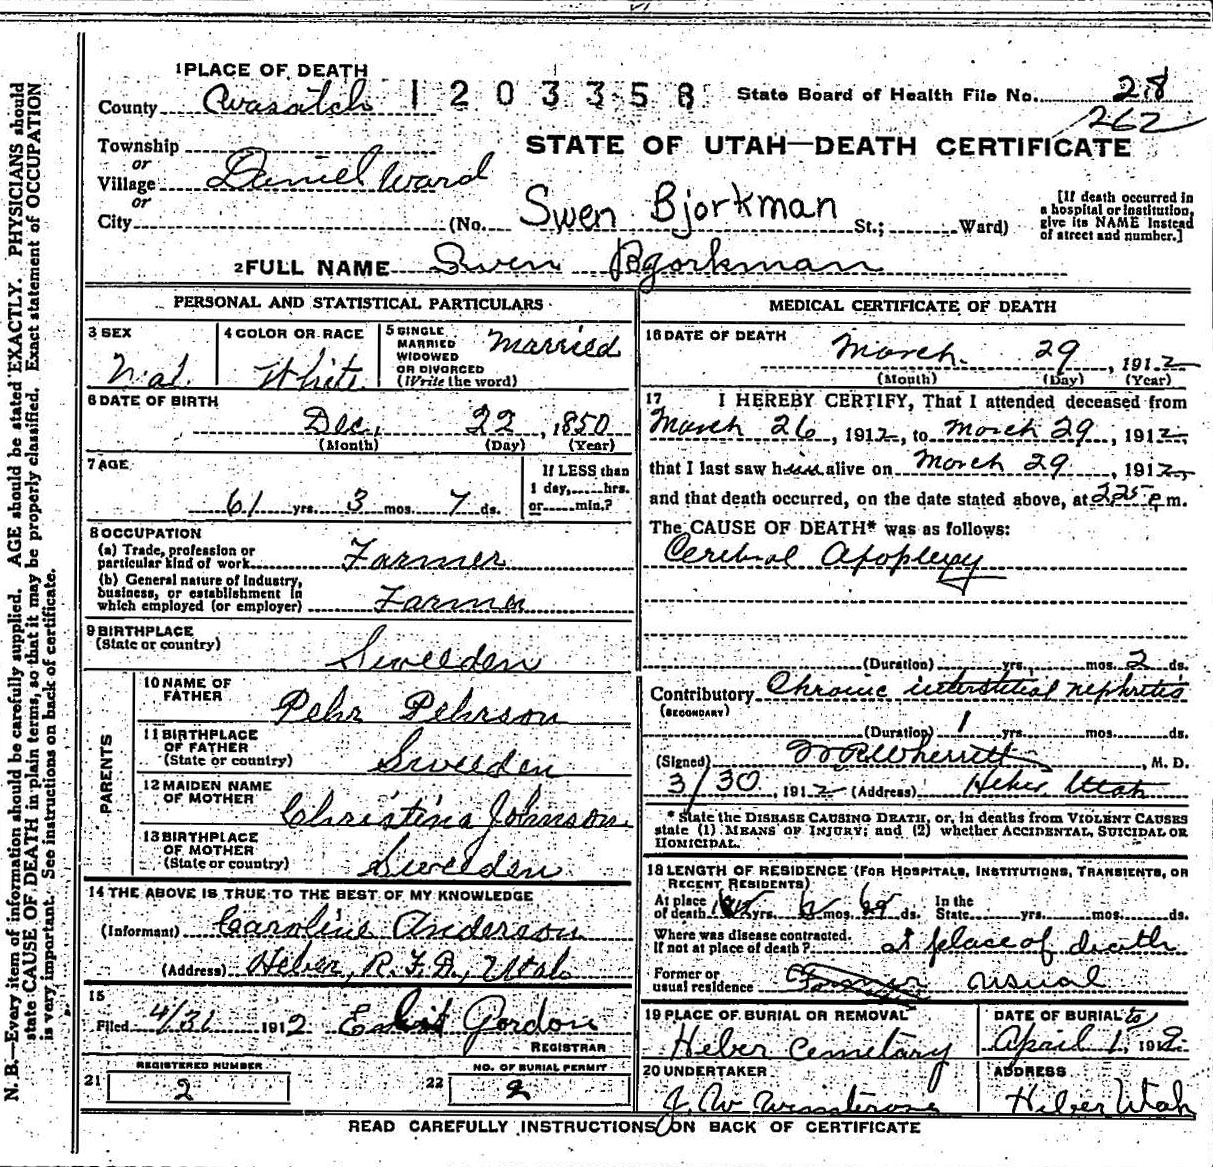 1 PLACE OF DEATH
County Wasatch 1203358 State Board of Health File No. 28
262
Township
or
Village Daniel Ward
or
City
STATE OF UTAH—DEATH CERTIFICATE
(No. Swen Bjorkman St.; Ward)
[If death occurred in
a hospital or institution,
give its NAME instead
of street and number.]
2 FULL NAME Swen Bjorkman
PERSONAL AND STATISTICAL PARTICULARS
3 SEX
Mal
4 COLOR OR RACE
White
5 SINGLE
MARRIED
WIDOWED
OR DIVORCED
(Write the word)
Married
6 DATE OF BIRTH
Dec, 22, 1850
(Month) (Day) (Year)
7 AGE
61 yrs. 3 mos. 7 ds.
If LESS than
1 day, hrs.
or min.?
8 OCCUPATION
(a) Trade, profession or
particular kind of work Farmer
(b) General nature of industry,
business, or establishment in
which employed (or employer) Farmer
9 BIRTHPLACE
(State or country)
Sweeden
PARENTS
10 NAME OF
FATHER
Pehr Pehrson
11 BIRTHPLACE
OF FATHER
(State or country)
Sweeden
12 MAIDEN NAME
OF MOTHER
Christina Johnson
13 BIRTHPLACE
OF MOTHER
(State or country)
Sweeden
14 THE ABOVE IS TRUE TO THE BEST OF MY KNOWLEDGE
(Informant) Caroline Anderson
(Address) Heber, R.F.D., Utah
15
Filed 4/31 1912 Gordon
REGISTRAR
REGISTERED NUMBER
21 2
NO. OF BURIAL PERMIT
22 2
MEDICAL CERTIFICATE OF DEATH
16 DATE OF DEATH
March 29, 1912
(Month) (Day) (Year)
17 I HEREBY CERTIFY, That I attended deceased from
March 26, 1912, to March 29, 1912,
that I last saw him alive on March 29, 1912,
and that death occurred, on the date stated above, at 225 P m.
The CAUSE OF DEATH* was as follows:
Cerebral Apoplexy
(Duration) yrs. mos. 2 ds.
Contributory Chronic interstitial nephritis
(SECONDARY)
(Duration) 1 yrs. mos. ds.
(Signed) W R Wherritt, M. D.
3/30, 1912 (Address) Heber Utah
* State the DISEASE CAUSING DEATH, or, in deaths from VIOLENT CAUSES
state (1) MEANS OF INJURY; and (2) whether ACCIDENTAL, SUICIDAL OR
HOMICIDAL.
18 LENGTH OF RESIDENCE (FOR HOSPITALS, INSTITUTIONS, TRANSIENTS, OR
RECENT RESIDENTS)
At place
of death yrs. mos. ds.
In the
State yrs. mos. ds.
Where was disease contracted.
If not at place of death? at place of death
Former or
usual residence usual
19 PLACE OF BURIAL OR REMOVAL
Heber Cemetary
DATE OF BURIAL
April 1, 1912
20 UNDERTAKER
J. W.
ADDRESS
Heber Utah
READ CAREFULLY INSTRUCTIONS ON BACK OF CERTIFICATE
N. B.—Every item of information should be carefully supplied. AGE should be stated EXACTLY. PHYSICIANS should
state CAUSE OF DEATH in plain terms, so that it may be properly classified. Exact statement of OCCUPATION
is very important. See instructions on back of certificate.